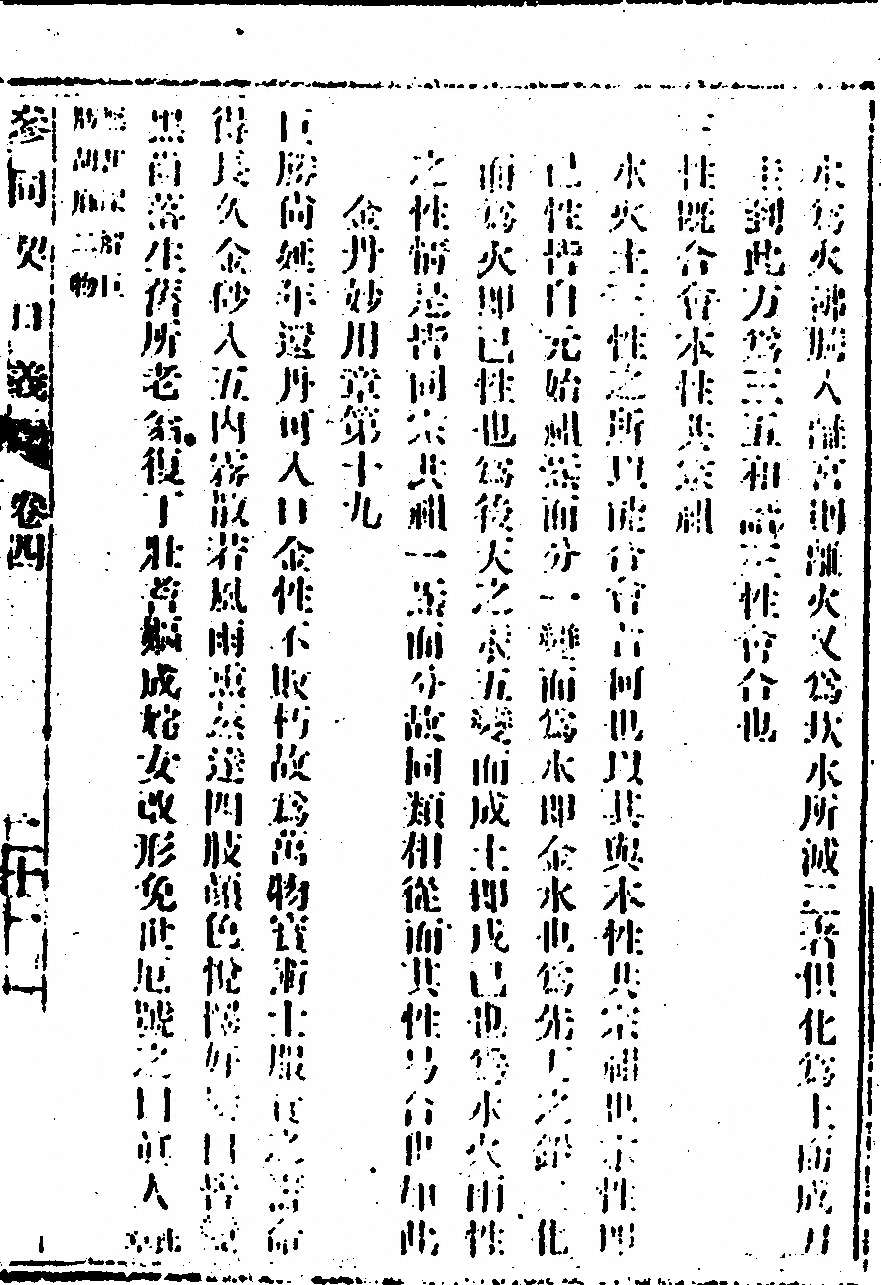 水爲火沸騰入離宮則離火又爲坎水所滅二者俱化爲土而成刀
圭到此方爲三五和諧三性會合也
三性既合會本性共宗祖
水火土三性之所以能合會者何也以其與本性共宗祖也本性即
己性皆自元始祖炁而分一變而爲水即金水也爲先天之鉛二化
而爲火即己性也爲後天之汞五變而成土即戊己也爲水火兩性
之性情是皆同宗共祖一炁而分故同類相從而其性易合也知此
金丹妙用章第十九
巨勝尚延年還丹可入口金性不敗朽故爲萬物寶術士服食之壽命
得長久金砂入五內霧散若風雨熏蒸達四肢顏色悅澤好髮白皆變
黑齒落生舊所老翁復丁壯耆嫗成姹女改形免世厄號之曰眞人
參同契口義 卷四